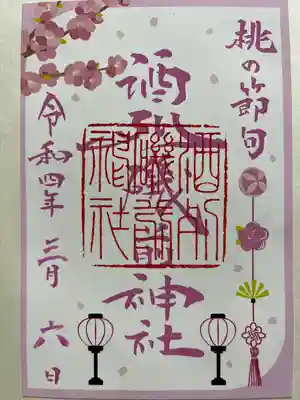 桃の節句
酒列磯前神社
酒列
磯前
神社
令和四年 三月 六日